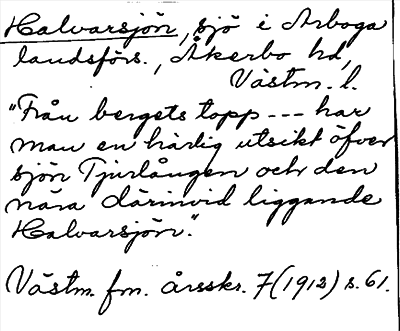 Halvarsjön, sjö i Arboga
landsförs., Åkerbo hd,
Västm. l.
"Från bergets topp --- har
man en härlig utsikt öfver
sjön Tjurlången och den
nära därinvid liggande
Halvarsjön."
Västm. fm. årsskr. 7 (1913) s. 61.